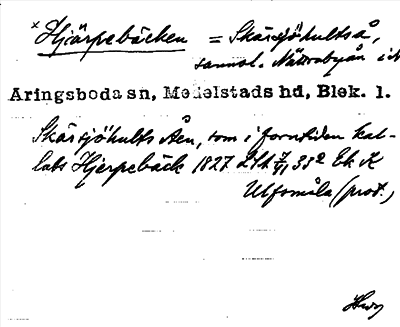 × Hjärpebäcken = Skärsjöhultså,
sannol. Nättrabyån i
Aringsboda sn, Medelstads hd, Blek. l.
Skärsjöhults Åen, som i forntiden kal-
lats Hjerpebäck 1827
Ulfsmåla (prot.)